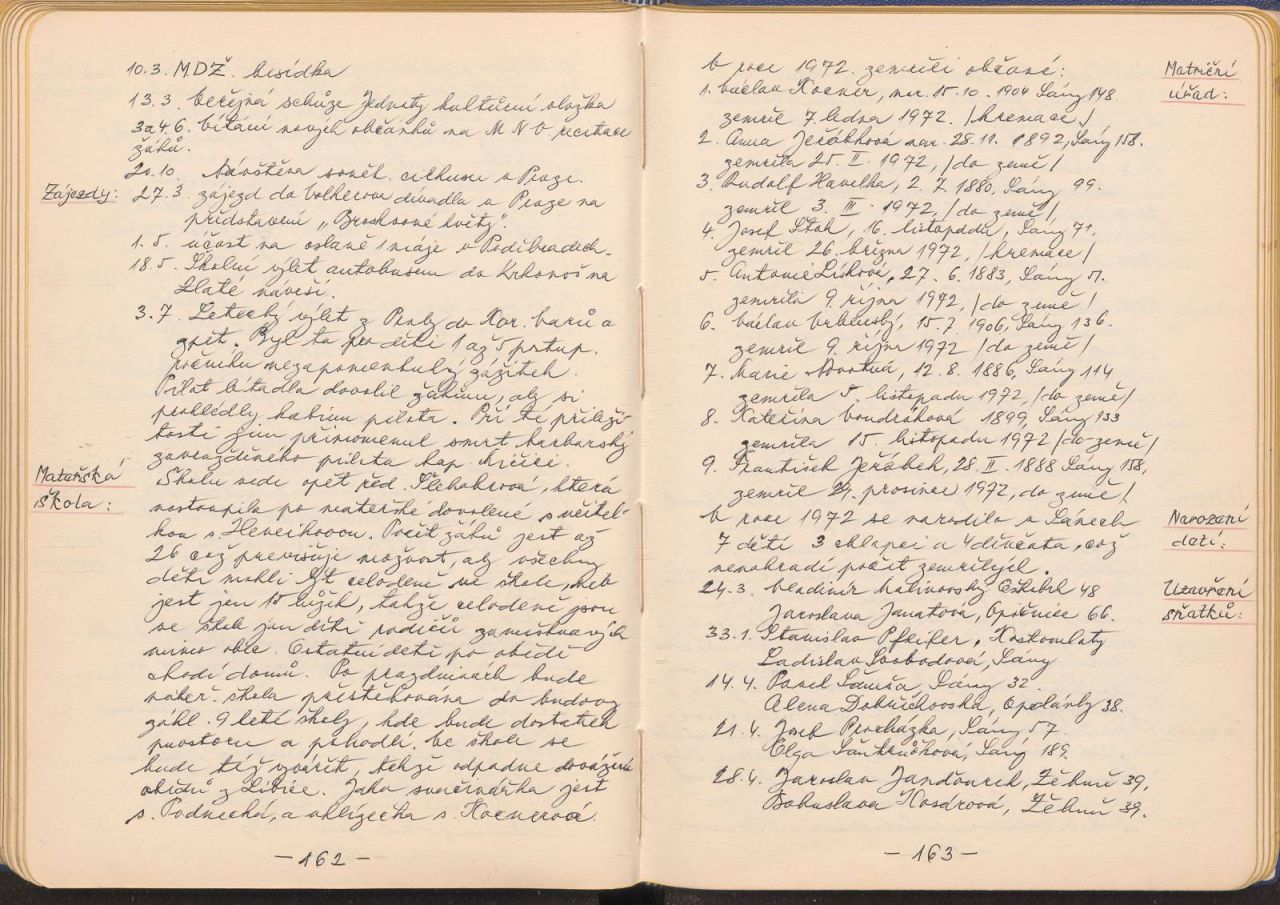 10.3. MDŽ. besídka
13.3. Veřejná schůze Jednoty kulturní vložka
3 a 4.6. Vítání nových občánků na MNV, recitace
žáků.
20.10. Návštěva sovět. cirkusu v Praze.
Zájezdy:
27.3. zájezd do Volkerova divadla v Praze na
představení „Broskvové květy".
1.5. účast na oslavě 1 máje v Poděbradech.
18.5. Školní výlet autobusem do Krkonoš na
Zlaté návrší.
3.7. Letecký výlet z Prahy do Kar. Varů a
zpět. Byl to pro děti 1 až 5 postup.
ročníku nezapomenutelný zážitek.
Pilot letadla dovolil žákům, aby si
prohlédly kabinu pilota. Při té příleži-
tosti jim připomenul smrt barbarsky
zavražděného pilota kap. Mičici.
Mateřská
škola:
Školu vede opět řed. Plchotová, která
nastoupila po mateřské dovolené s učitel-
kou s. Hencikovou. Počet žáků jest až
26 což převišuje možnost, aby všechny
děti mohli být celodeně ve škole, neb
jest jen 15 lůžek, takže celodeně jsou
ve škole jen děti rodičů zaměstnaných
mimo obec. Ostatní děti po obědě
chodí domů. Po prazdninách bude
mateř. škola přestěhována do budovy
zákl. 9 leté školy, kde bude dostatek
prostoru a pohodlí. Ve škole se
bude též vyvářit, takže odpadne dovážení
obědů z Libice. Jako svačinářka jest
s. Podnecká, a uklízečka s. Kocnerová.
— 162 —
V roce 1972 zemřeli občané:
Matriční
úřad:
1. Václav Kocnér, nar. 15.10. 1904 Sány 148.
zemřel 7. ledna 1972. /kremace/
2. Anna Jeřábková nar. 28.11. 1892, Sány 158.
zemřela 25. II. 1972, /do země/
3. Rudolf Havelka, 2.7. 1880, Sány 99.
zemřel 3. III. 1972, /do země/,
4. Josef Štok, 16. listopadu, Sány 71.
zemřel 26. března 1972, /kremace/
5. Antonie Lišková, 27. 6. 1883, Sány 51.
zemřela 9. října 1972, /do země/
6. Václav Vrbenský, 15.7. 1906, Sány 136.
zemřel 9. října 1972 /do země/
7. Marie Novotná, 12.8. 1886, Sány 114
zemřela 5. listopadu 1972, /do země/
8. Kateřina Vondráková 1899, Sány 133
zemřela 15. listopadu 1972 /do země/
9. František Jeřábek, 28. II. 1888 Sány 158,
zemřel 24. prosince 1972, do země/
V roce 1972 se narodilo v Sánech
Narození
dětí:
7 dětí 3 chlapci a 4 děvčata, což
nenahradí počet zemřelých.
Uzavření
sňatků:
24.3. Vladimír Malinovský 48
Jaroslava Janatová, Opočnice 66.
33.1. Stanislav Pfeifer, Kostomlaty
Ladislav Svobodová, Sány
14.4. Pavel Šamša, Sány 32.
Alena Dobřichovská, Opolánky 38.
21.4. Josef Procházka, Sány 57.
Olga Šantrůčková, Sány 189.
28.4. Jaroslav Jandourek, Žehuň 39,
Bohuslava Kosárová, Žehuň 39.
— 163 —